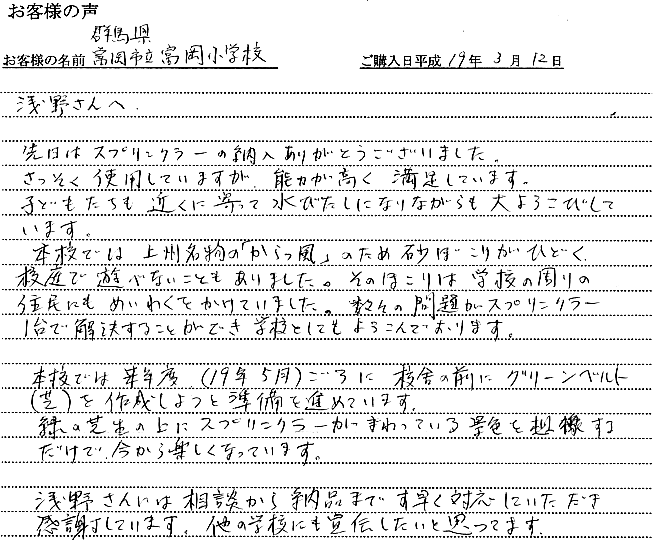 お客様の声
群馬県
お客様の名前 富岡市立富岡小学校 ご購入日平成 19年 3月 12日
浅野さんへ.
先日はスプリンクラーの納入ありがとうございました。
さっそく使用していますが、能力が高く 満足しています。
子どもたちも 近くに寄って 水びたしになりながらも 大よろこびして
います。
本校では 上州名物の「からっ風」のため 砂ぼこりがひどく
校庭で 遊べないこともありました。そのほこりは 学校の周りの
住民にも めいわくをかけていました。数々の問題がスプリンクラー
1台で解決することができ 学校としてもよろこんでおります。
本校では 来年度 (19年5月)ごろに 校舎の前に グリーンベルト
(芝)を 作成しようと準備を進めています。
緑の芝生の上に スプリンクラーがまわっている 景色を想像する
だけで、今から楽しくなっています。
浅野さんには 相談から納品まで す早く対応していただき
感謝しています。他の学校にも宣伝したいと思ってます.